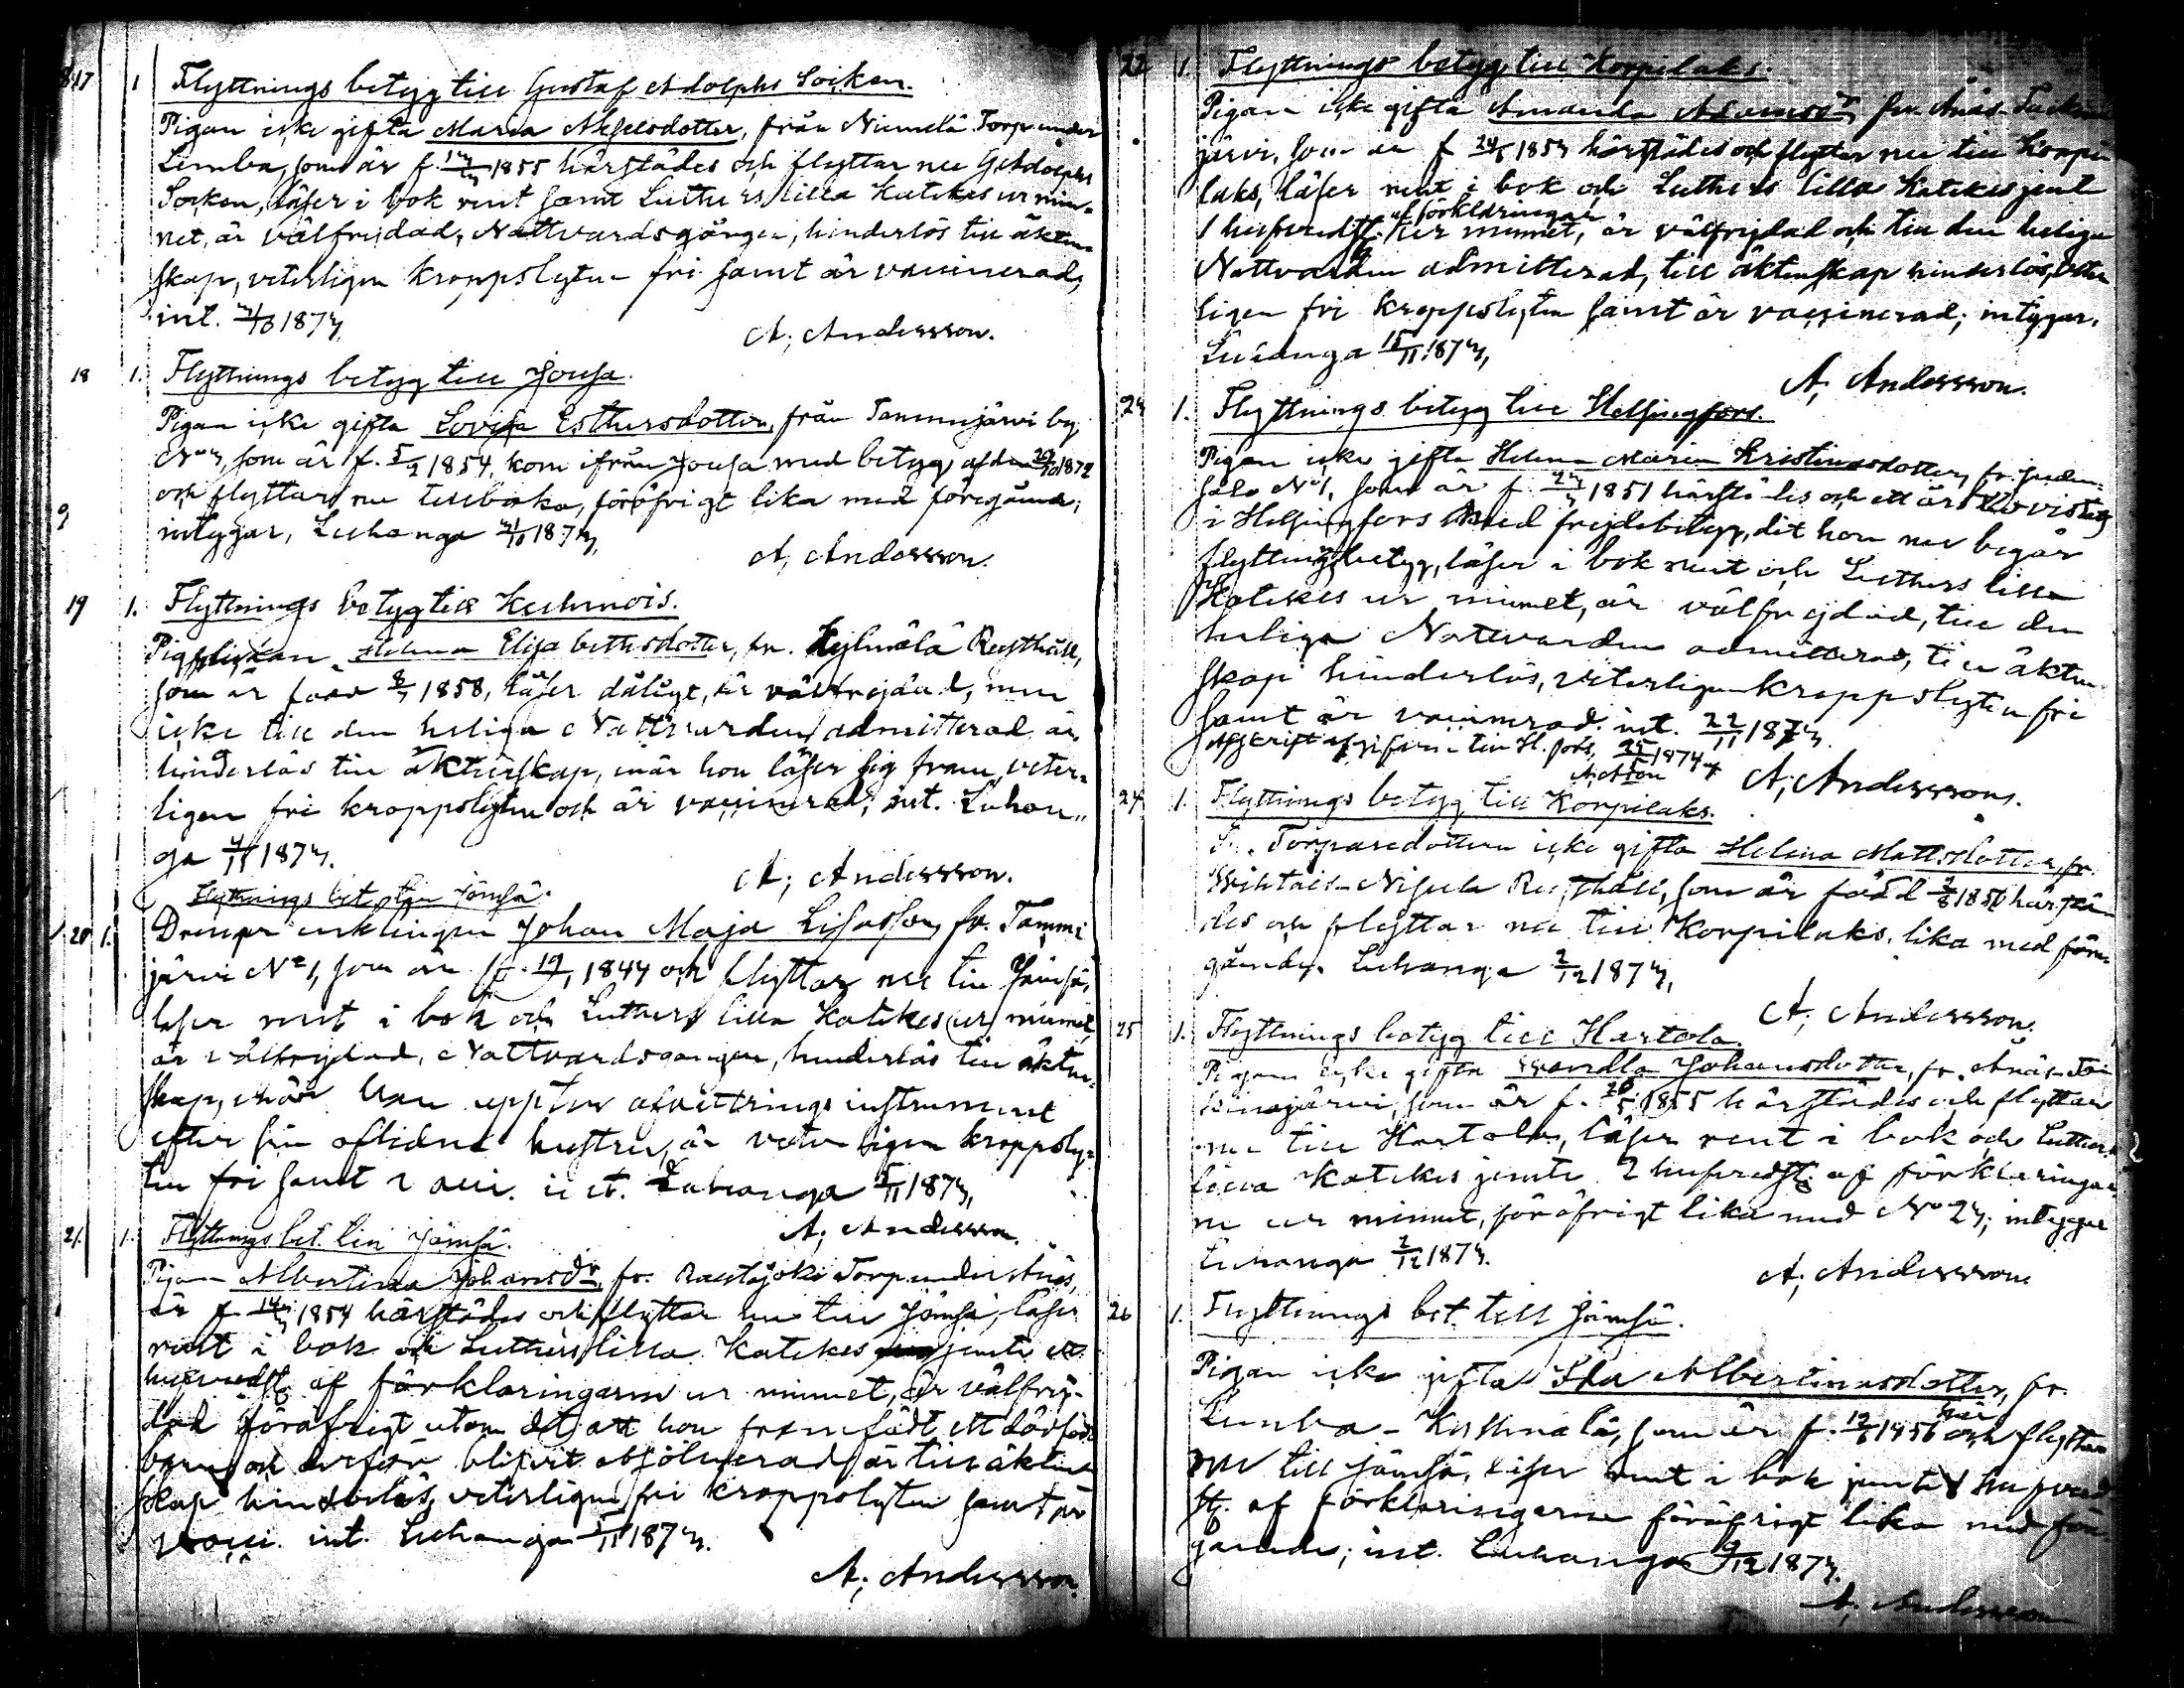 17 1 Flyttnings betyg till Gustaf Adolphs Socken.
Pigan icke gifta Maria Axelsdotter, från Niemelä Torp under
Lemba, som är f. 1855 härstädes och flyttar nu till G. Adolphs
Socken, läser i bok rent samt Luthers lilla Katekes ur min-
net, är välfrejdad, Nattvardsgången, hinderlös till äkten-
skap, veterligen kroppslyten fri samt är vaccinerad,
int. 1873.
A. Andersson.
18 1. Flyttnings betyg till Joutsa.
Pigan icke gifta Lovisa Esthersdotter, från Tammijärvi by
som är f. 5/2 1854, kom ifrån Joutsa med betyg af den 1872
och flyttar nu tillbaka, föröfrigt lika med föregående;
intygar, Luhanga 1873,
A. Andersson.
19 1. Flyttnings betyg till Kuhmois.
Pigflickan Helena Elisabethsdotter, fr. Kylmälä Rusthåll,
som är född 1858, läser dåligt, är välfrejdad, men
icke till den heliga Nattvarden admitterad är
hinderlös till äktenskap, när hon läser sig fram, veter-
ligen fri kroppslyten och är vaccinerad; int. Luhan-
ga 1873.
A. Andersson.
Flyttnings bet. till Jämsä.
20 1. Drengen enklingen Johan Maja Lisasson, fr. Tammi
järvi No 1, som är f. 19/1 1844 och flyttar nu till Jämsä,
läser rent i bok och Luthers lilla Katekes ur minnet,
är välfrejdad, Nattvardsgången, hinderlös till äkten-
skap, när han uppter afvittrings instrument
efter sin aflidne hustru, är veterligen kroppsly-
ten fri samt vacci. int. Luhanga 1873,
A. Andersson.
21. 1. Flyttnings bet. till Jämsä.
Pigan Albertina Johansdr, fr. Rautajoki Torp under Anäs,
är f. 1854 härstädes och flyttar nu till Jämsä, läser
rent i bok och Luthers lilla Katekes jemte ett
hufvudst. af förklaringarne ur minnet, är välfrej-
dad föröfrigt utom det att hon framfödt ett dödfödt
barn och derför blifvit absolverad är till äkten
skap hinderlös, veterligen fri kroppslyten samt är
vacci. int. Luhanga 1873.
A. Andersson.
22 1. Flyttnings betyg till Korpilaks.
Pigan icke gifta Amanda Adamsdr, fr. Anäs-
järvi, som är f. 1857 härstädes och flyttar nu till Korpi
laks, läser rent i bok och Luthers lilla Katekes jemte
af förklaringar
1 hufvudst. ur minnet, är välfrejdad och till den heliga
Nattvarden admitterad, till äktenskap hinderlös, veter
ligen fri kroppslyten samt är vaccinerad; intygar.
Luhanga 15/11 1873,
A. Andersson.
23 1. Flyttnings betyg till Helsingfors.
Pigan icke gifta Helena Maria Kristinasdotter, fr.
salo No 1, som är f. 1851 härstädes och ett år vistats
i Helsingfors med frejdebetyg, dit hon nu begär
flyttningsbetyg, läser i bok rent och Luthers lilla
Katekes ur minnet, är välfrejdad, till den
heliga Nattvarden admitterad, till äkten
skap hinderlös, veterligen kroppslyten fri
samt är vaccinerad. int. 22/11 1873.
Afskrift af gifven till H.fors, 1874
A. Andersson.
24 1. Flyttnings betyg till Korpilaks.
Torparedottern icke gifta Helena Mattsdotter, fr.
Nisula Rusthåll, som är född 1856 härstä
des och flyttar nu till Korpilaks. lika med före-
gående. Luhanga 2/12 1873,
A. Andersson.
25 1. Flyttnings betyg till Hartola.
Pigan icke gifta Wendla Johansdotter, fr. Anäs
järvi, som är f. 1855 härstädes och flyttar
nu till Hartola, läser rent i bok och Luthers
lilla Katekes jemte 2 hufvudst. af förklaringar
ne ur minnet, föröfrigt lika med No 23; intygar
Luhanga 2/12 1873.
A. Andersson
26 1. Flyttnings bet. till Jämsä.
Pigan icke gifta Ida Albertinasdotter, fr.
Lemba - som är f. 1856 här och flyttar
nu till Jämsä, läser rent i bok jemte hufvud
st. af förklaringarne föröfrigt lika med före
gående; int. Luhanga 9/12 1873.
A. Andersson